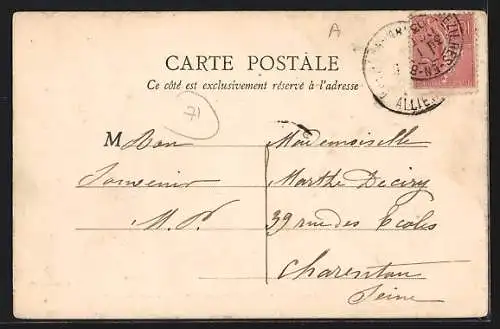 A
CARTE POSTALE
Ce côté est exclusivement réservé à l'adresse
71
M Bon
Souvenir
M. P.
Mademoiselle
Marthe Deciry
39 rue des Ecoles
Charenton
Seine
ALLIE